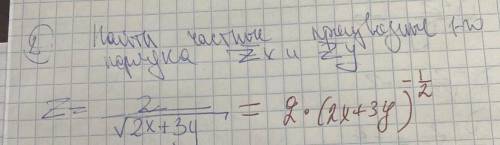 2) Найти частные производные 1-го
порядка Zx и Zy
Z = 2/√(2x+3y) = 2·(2x+3y)^(-1/2)